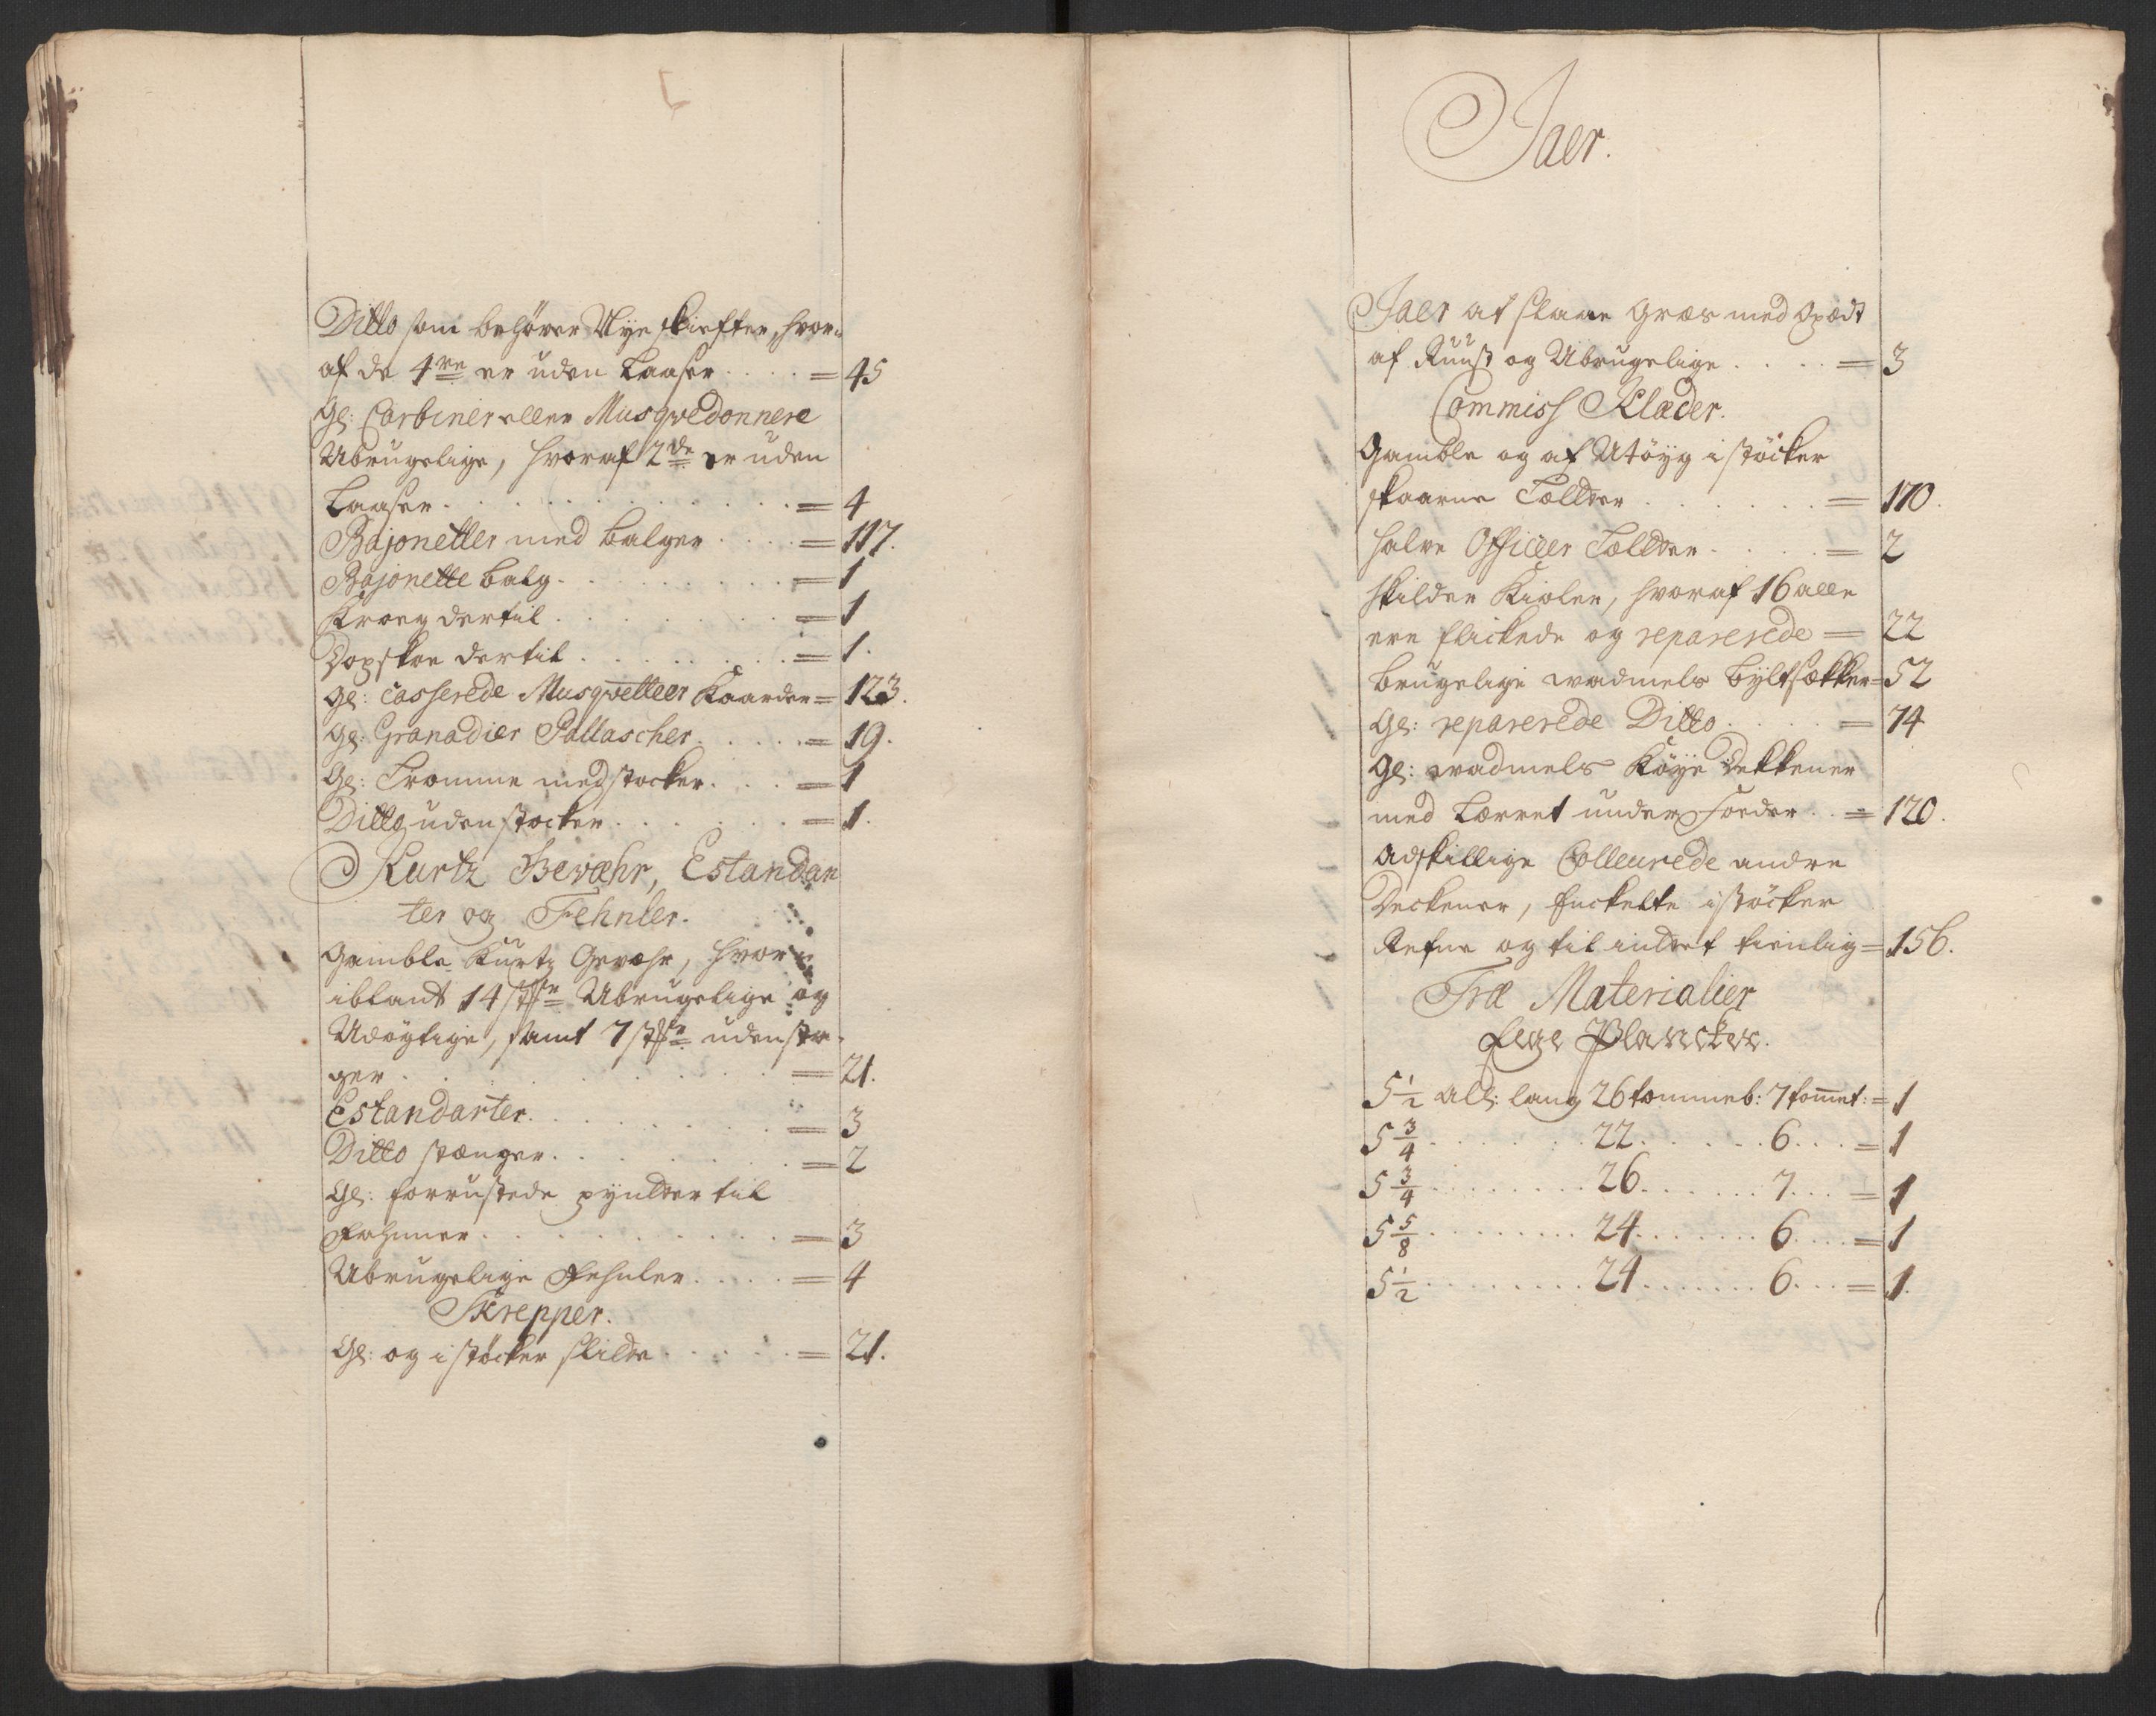 Ditto som behöver Nye skiefter, hvor-
af de 4re er uden Laaser .... = 45
Gl: Carbiner eller Musqvedonnere
Ubrugelige, hvoraf 2de er uden
Laaser ......... = 4
Bajonetter med balger .... = 117.
Bajonette balg ........ = 1
Kroeg dertil ........ = 1
Dopskoe dertil ....... = 1.
Gl: Casserede Musqvetteer Kaarder = 123.
Gl: Granadier Pallascher ..... = 19.
Gl: Tromme med stocker .... = 1
Ditto uden stocker ...... = 1.
Kurtz Gewæhr, Estandar
ter og Fehnler.
Gamble Kurtz Gewæhr, hvor
iblant 14 st Ubrugelige og
Udögtige, samt 7 st uden stæ-
ger ......... = 21.
Estandarter. ....... = 3
Ditto stænger ....... = 2
Gl: forrustede pynder til
Fahner ......... = 3
Ubrugelige Fehnler .... = 4
Skrepper.
Gl: og i stöcker slidte ..... = 21.
Jaer.
Jaer at slaae Græs med Opædt
af Ruust og Ubrugelige .... = 3
Commiss Klæder.
Gamble og af Utöyg i stöcker
skaarne Tællter ...... = 170.
halve Officeer Tællter .... = 2
skilder Kioler, hvoraf 16 alle
ere flickede og reparerede = 22
brugelige wadmels byltsækker = 52
Gl: reparerede Ditto .... = 74
Gl: wadmels Köye Dekkener
med Lærret under Foeder .. = 120.
Adskillige Colleurede andre
Deckener, Enckelte i stöcker
Refne og til indtet tienlig = 156.
Træ Materialier
Eege Plancker.
5 1/2 all: lang 26 tomme b: 7 tommet: = 1
5 3/4 ...... 22 ...... 6 ... = 1
5 3/4 ...... 26 ...... 7 ... = 1
5 5/8 ...... 24 ...... 6 ... = 1
5 1/2 ...... 24 ...... 6 ... = 1.